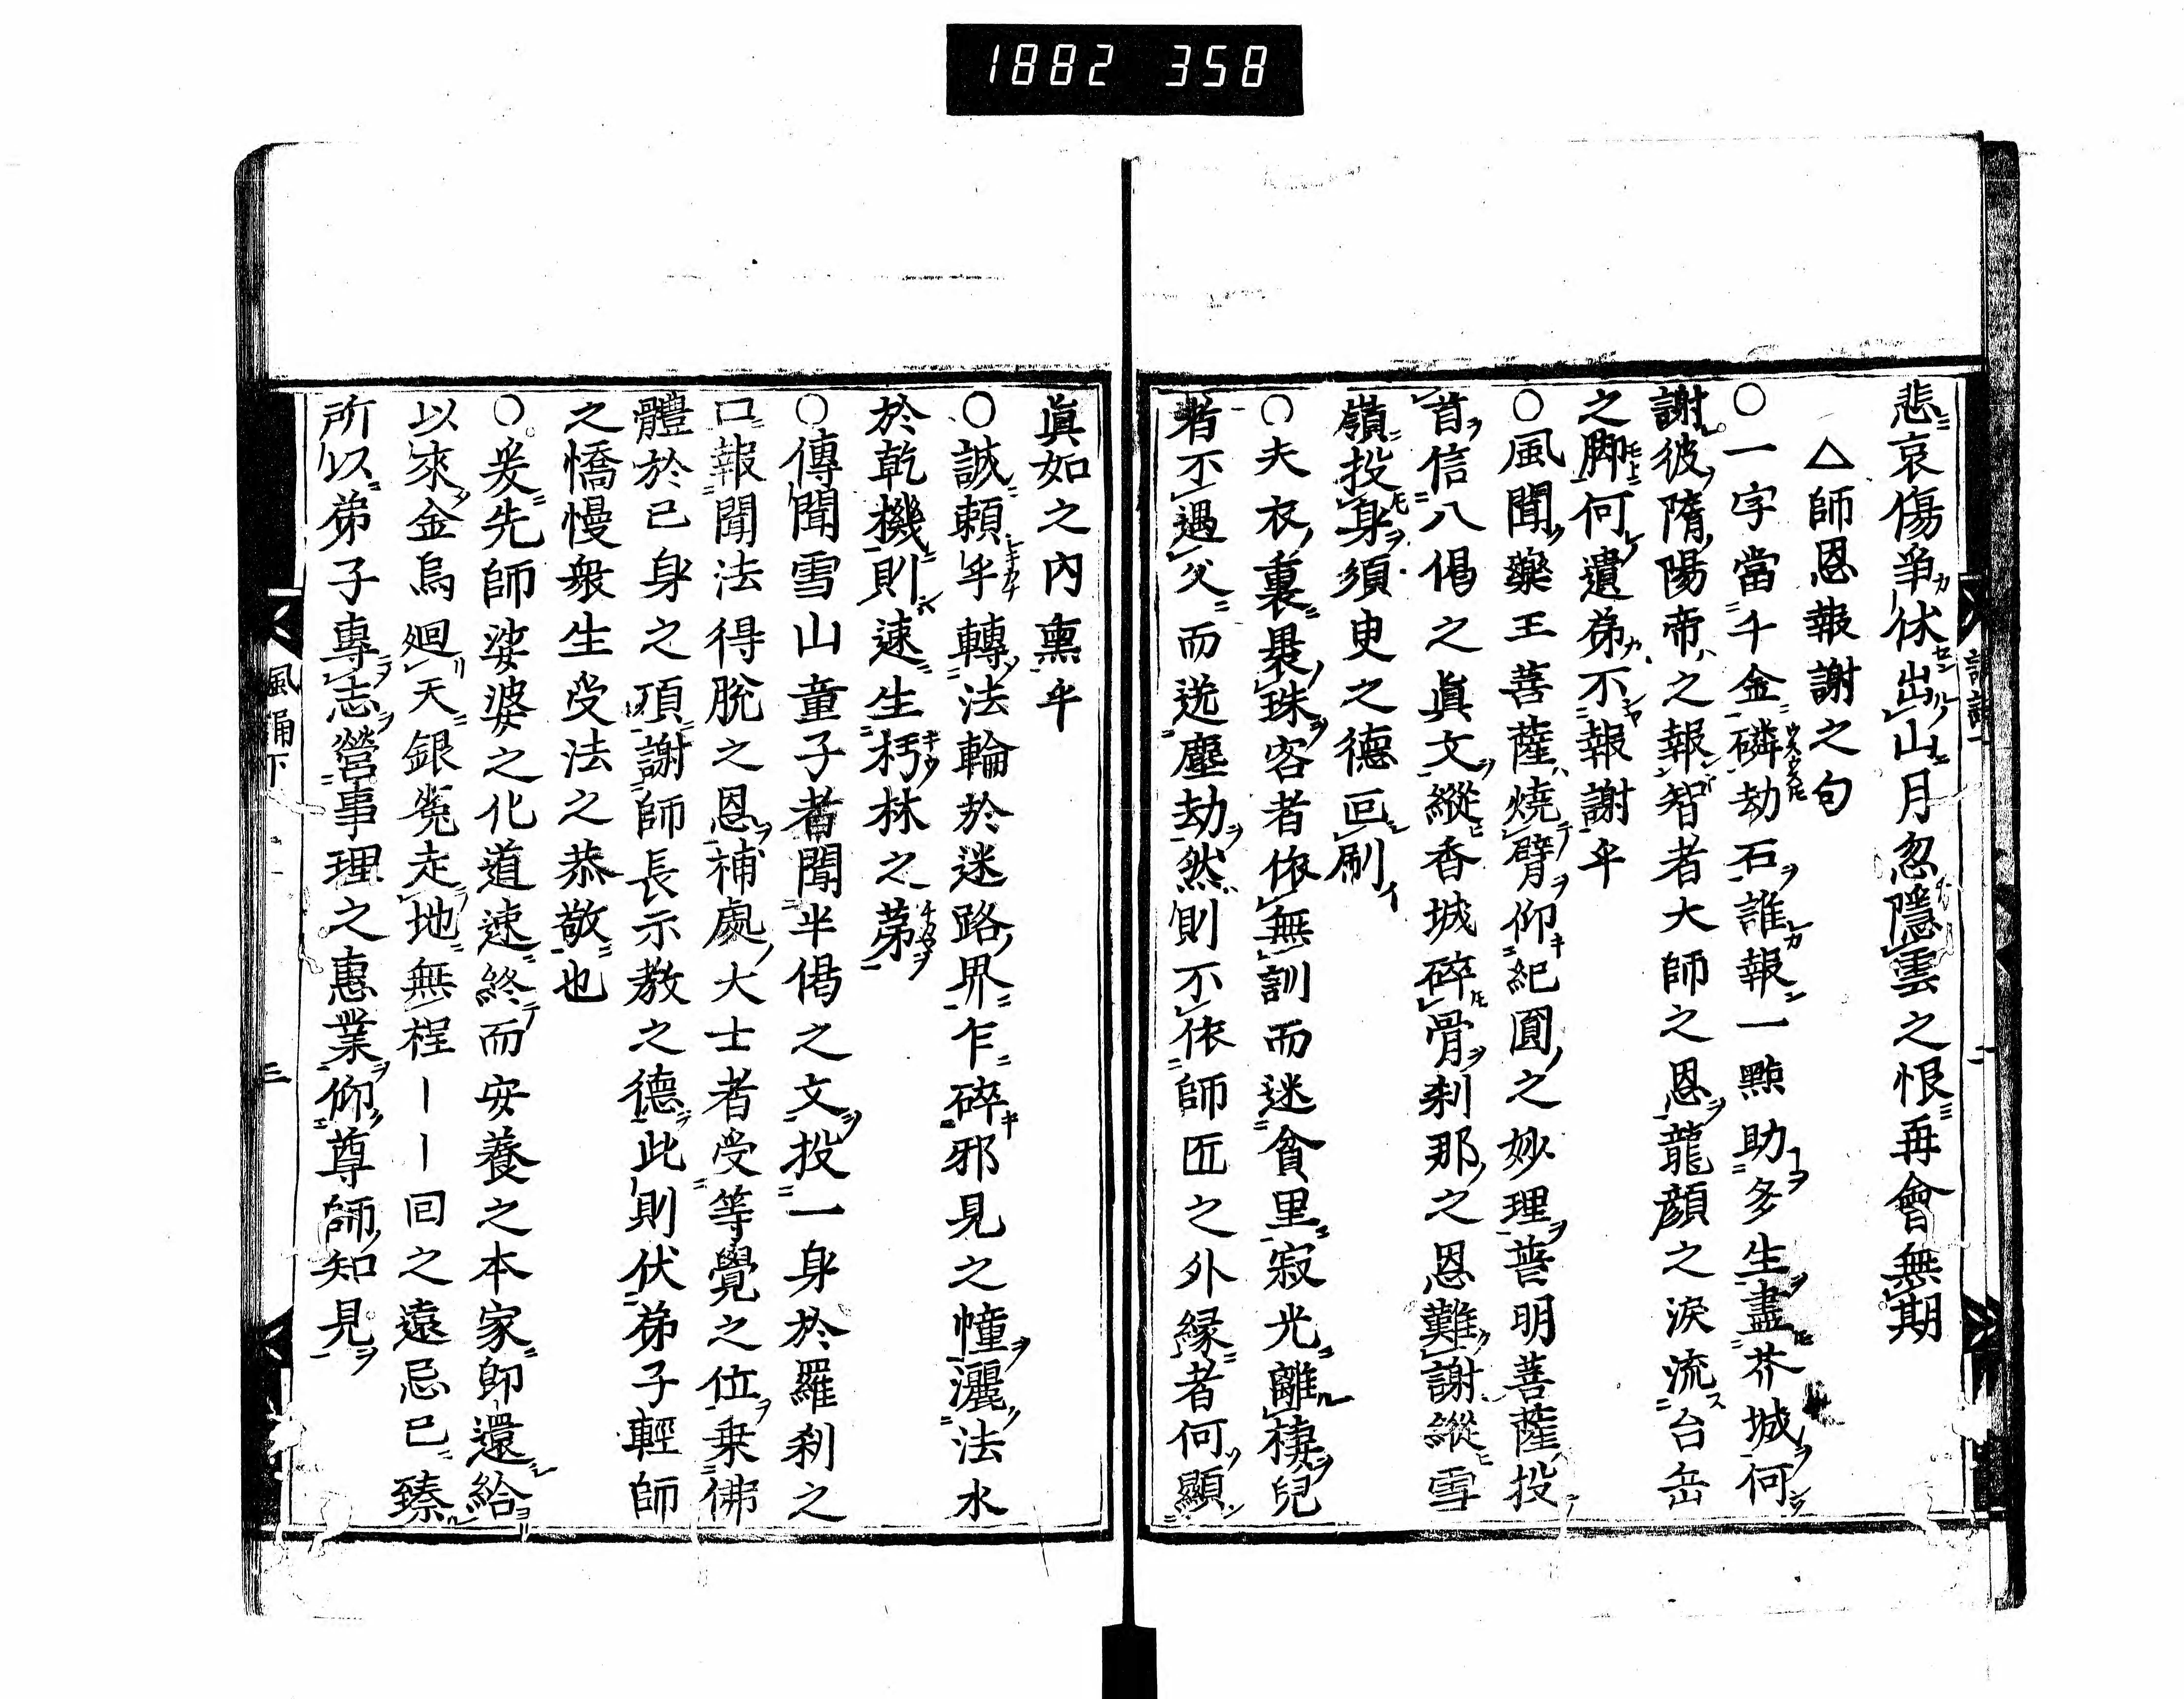 1882 358
悲哀傷争伏出山月忽隱雲之恨再會無期
△師恩報謝之句
○一字當千金磷劫石誰報一點助多生盡芥城何
謝彼隋陽帝之報智者大師之恩龍顔之淚流台岳
之脚何遺弟不報謝乎
○風聞藥王善薩燒臂仰紀圓之妙理普明菩薩投
首信八偈之眞文縱香城碎骨刹那之恩難謝縱雪
嶺投身須臾之德叵刷
○夫衣重裏褁珠客者依無訓而迷貧里寂光離棲兒
者不遇父而送塵劫然則不依師匠之外縁者何顯
眞如之內熏乎
○誠頼乎轉法輪於迷路界乍碎邪見之幢灑法水
於乾機則速生朽林之苐
○傳聞雪山童子者聞半偈之文投一身於羅刹之
口報聞法得脫之恩補處大士者受等覺之位乗佛
體於已身之頂謝師長示教之德此則伏弟子輕師
之憍慢衆生受法之恭敬也
○爰先師娑婆之化道速終而安養之本家卽還給
以來金烏廻天銀兎走地無程――回之遠忌已臻
所以弟子專志營事理之惠業仰尊師知見
風誦下 三